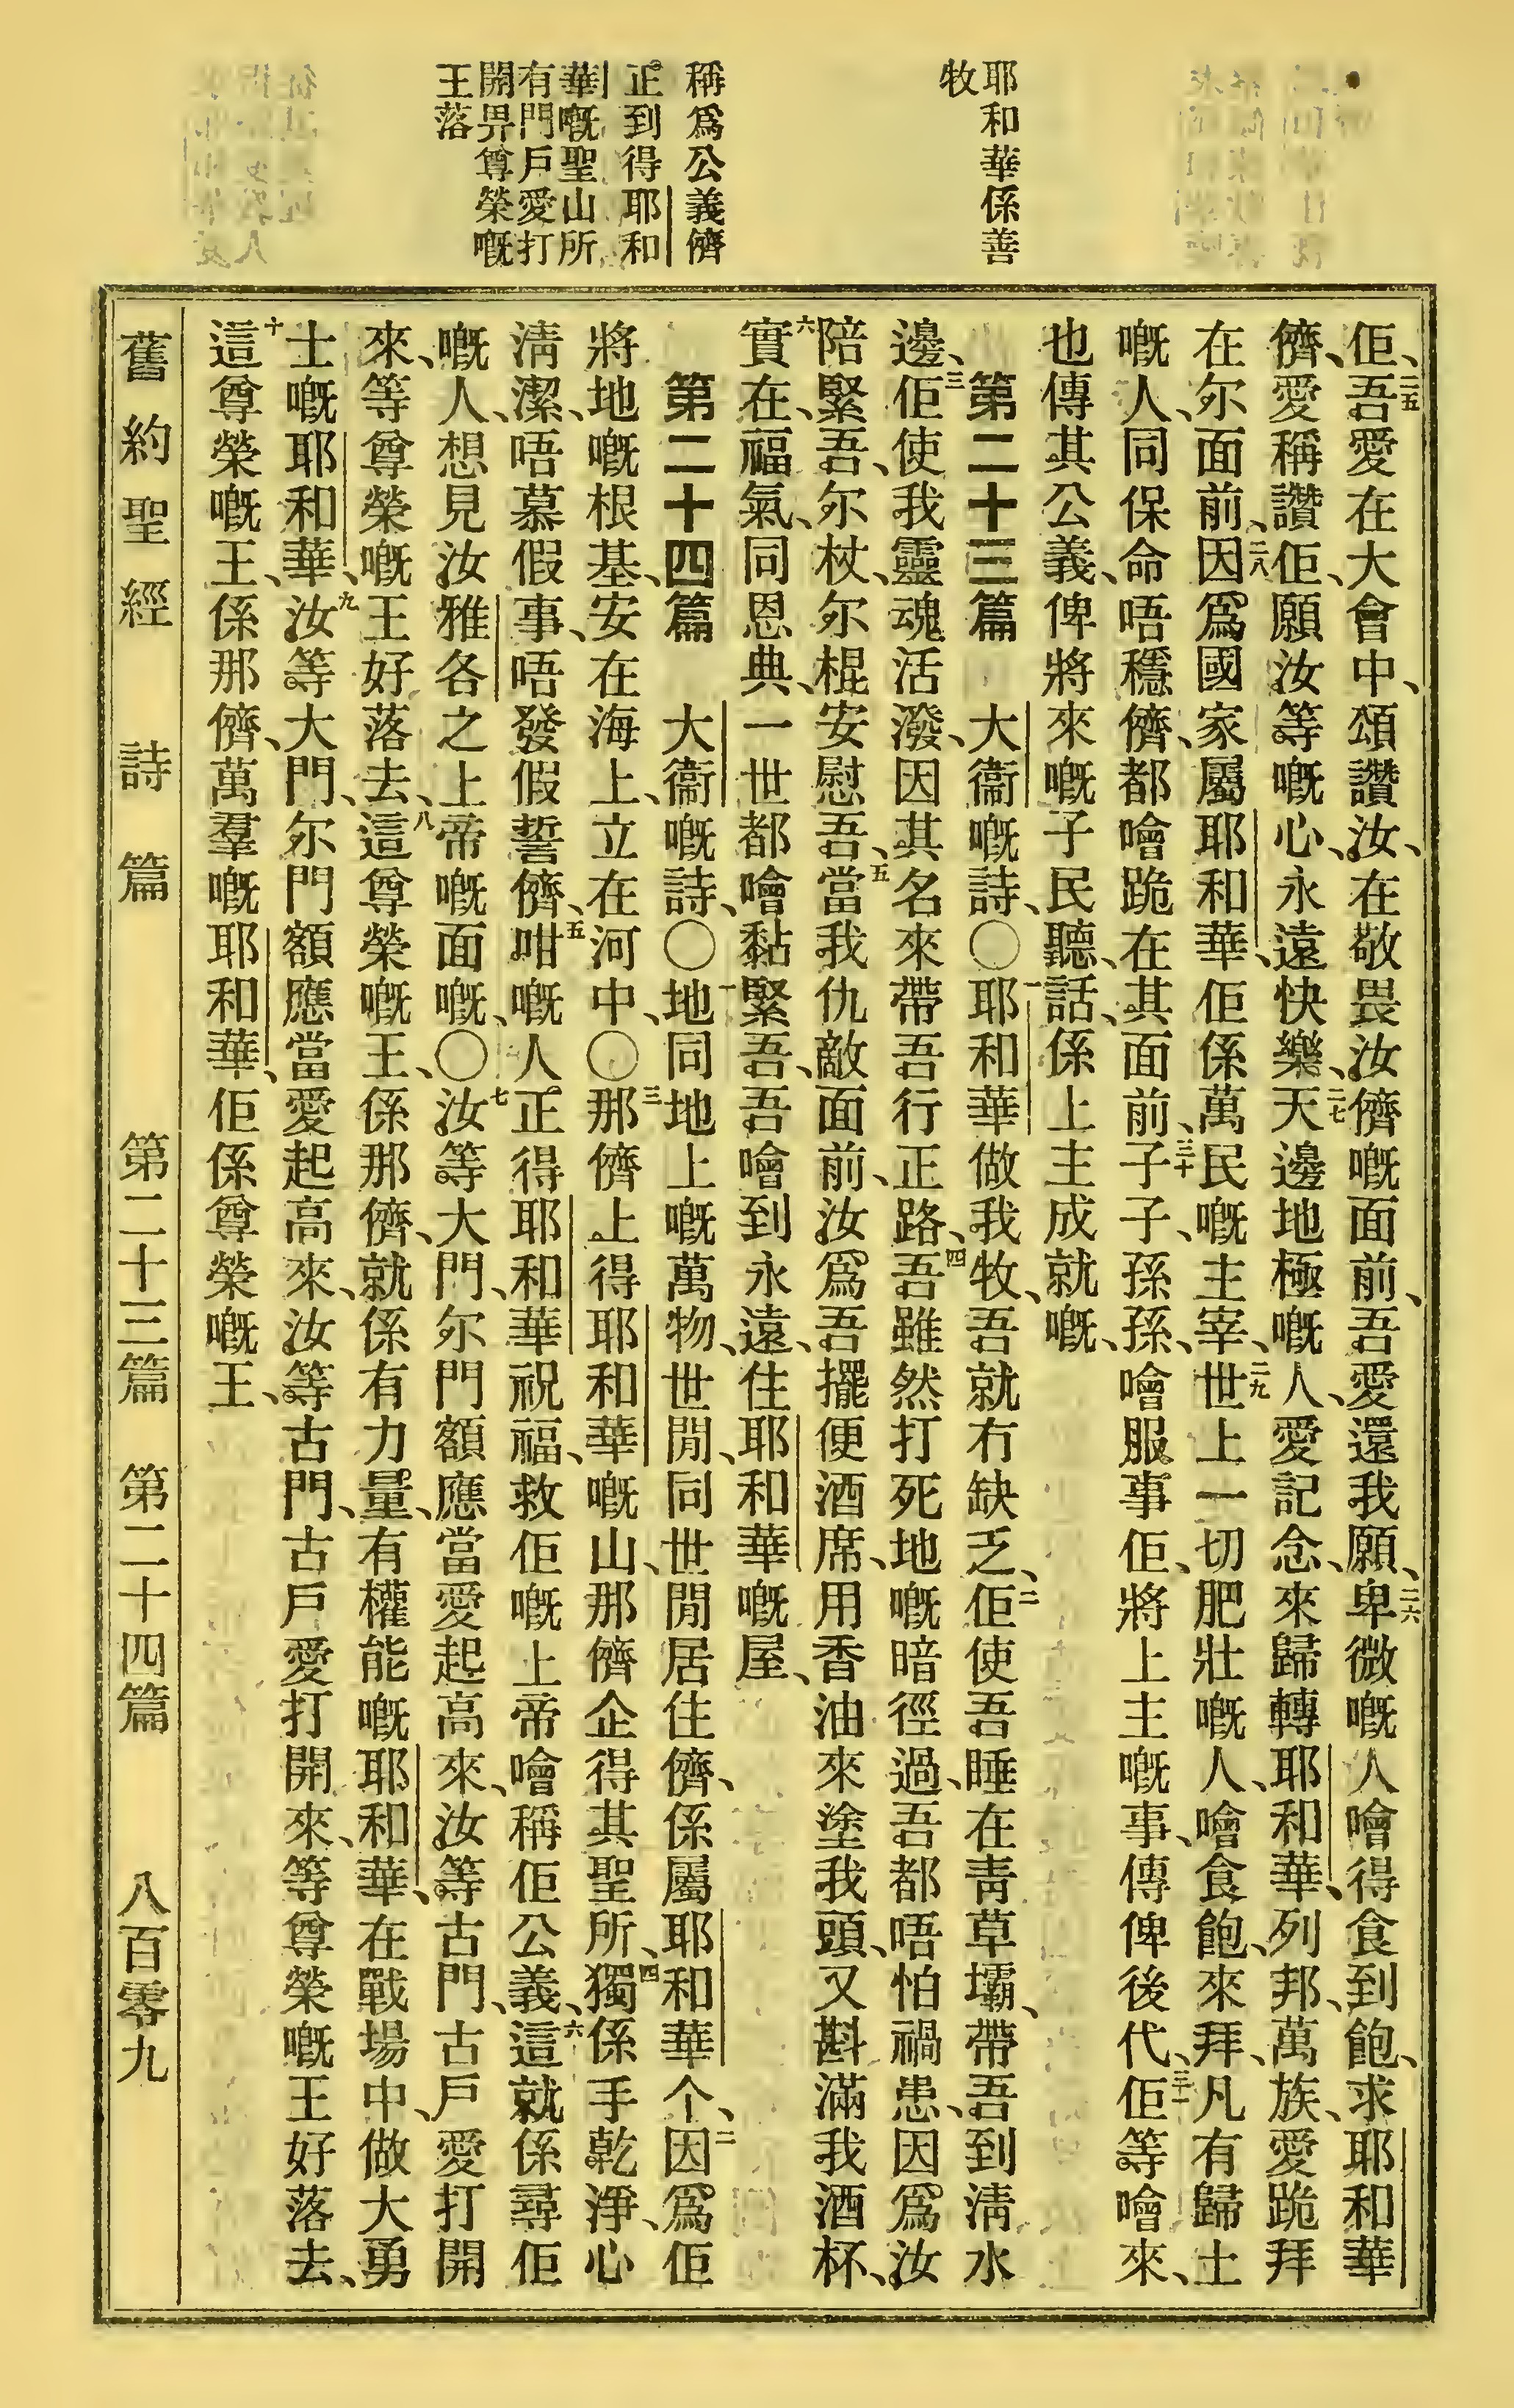 耶和華係善
牧
稱爲公義儕
正到得耶和
華嘅聖山所
有門戶愛打
開畀尊榮嘅
王落
佢、二五吾愛在大會中、頌讚汝、在敬畏汝儕嘅面前、吾愛還我願、二六卑微嘅人噲得食到飽、求耶和華
儕、愛稱讚佢、願汝等嘅心、永遠快樂、二七天邊地極嘅人、愛記念、來歸轉耶和華、列邦、萬族、愛跪拜
在尔面前、二八因爲國家屬耶和華、佢係萬民嘅主宰、二九世上一切肥壯嘅人、噲食飽、來拜、凡有歸土
嘅人、同保命唔穩儕、都噲跪在其面前、三十子子、孫孫、噲服事佢、將上主嘅事、傳俾後代、三一佢等噲來、
也傳其公義、俾將來嘅子民聽、話、係上主成就嘅、
第二十三篇 大衞嘅詩、〇一耶和華做我牧、吾就冇缺乏、二佢使吾睡在青草壩、帶吾到清水
邊、三佢使我靈魂活潑、因其名來帶吾行正路、四吾雖然打死地嘅暗徑過、吾都唔怕禍患、因爲汝
陪緊吾、尔杖、尔棍安慰吾、五當我仇敵面前、汝爲吾擺便酒席、用香油來塗我頭、又斟滿我酒杯、
六實在、福氣、同恩典、一世都噲黏緊吾、吾噲到永遠、住耶和華嘅屋、
第二十四篇 大衞嘅詩、〇一地同地上嘅萬物、世閒、同世閒居住儕、係屬耶和華个、二因爲佢
將地嘅根基、安在海上、立在河中、〇三那儕上得耶和華嘅山、那儕企得其聖所、四獨係手乾淨、心
淸潔、唔慕假事、唔發假誓儕、五咁嘅人正得耶和華祝福、救佢嘅上帝噲稱佢公義、六這就係尋佢
嘅人、想見汝雅各之上帝嘅面嘅、〇七汝等大門、尔門額應當愛起高來、汝等古門、古戶愛打開
來、等尊榮嘅王好落去、八這尊榮嘅王、係那儕、就係有力量、有權能嘅耶和華、在戰場中、做大勇
士嘅耶和華、九汝等大門、尔門額應當愛起高來、汝等古門、古戶愛打開來、等尊榮嘅王好落去、
十這尊榮嘅王、係那儕、萬羣嘅耶和華、佢係尊榮嘅王、
舊約聖經 詩篇 第二十三篇 第二十四篇 八百零九